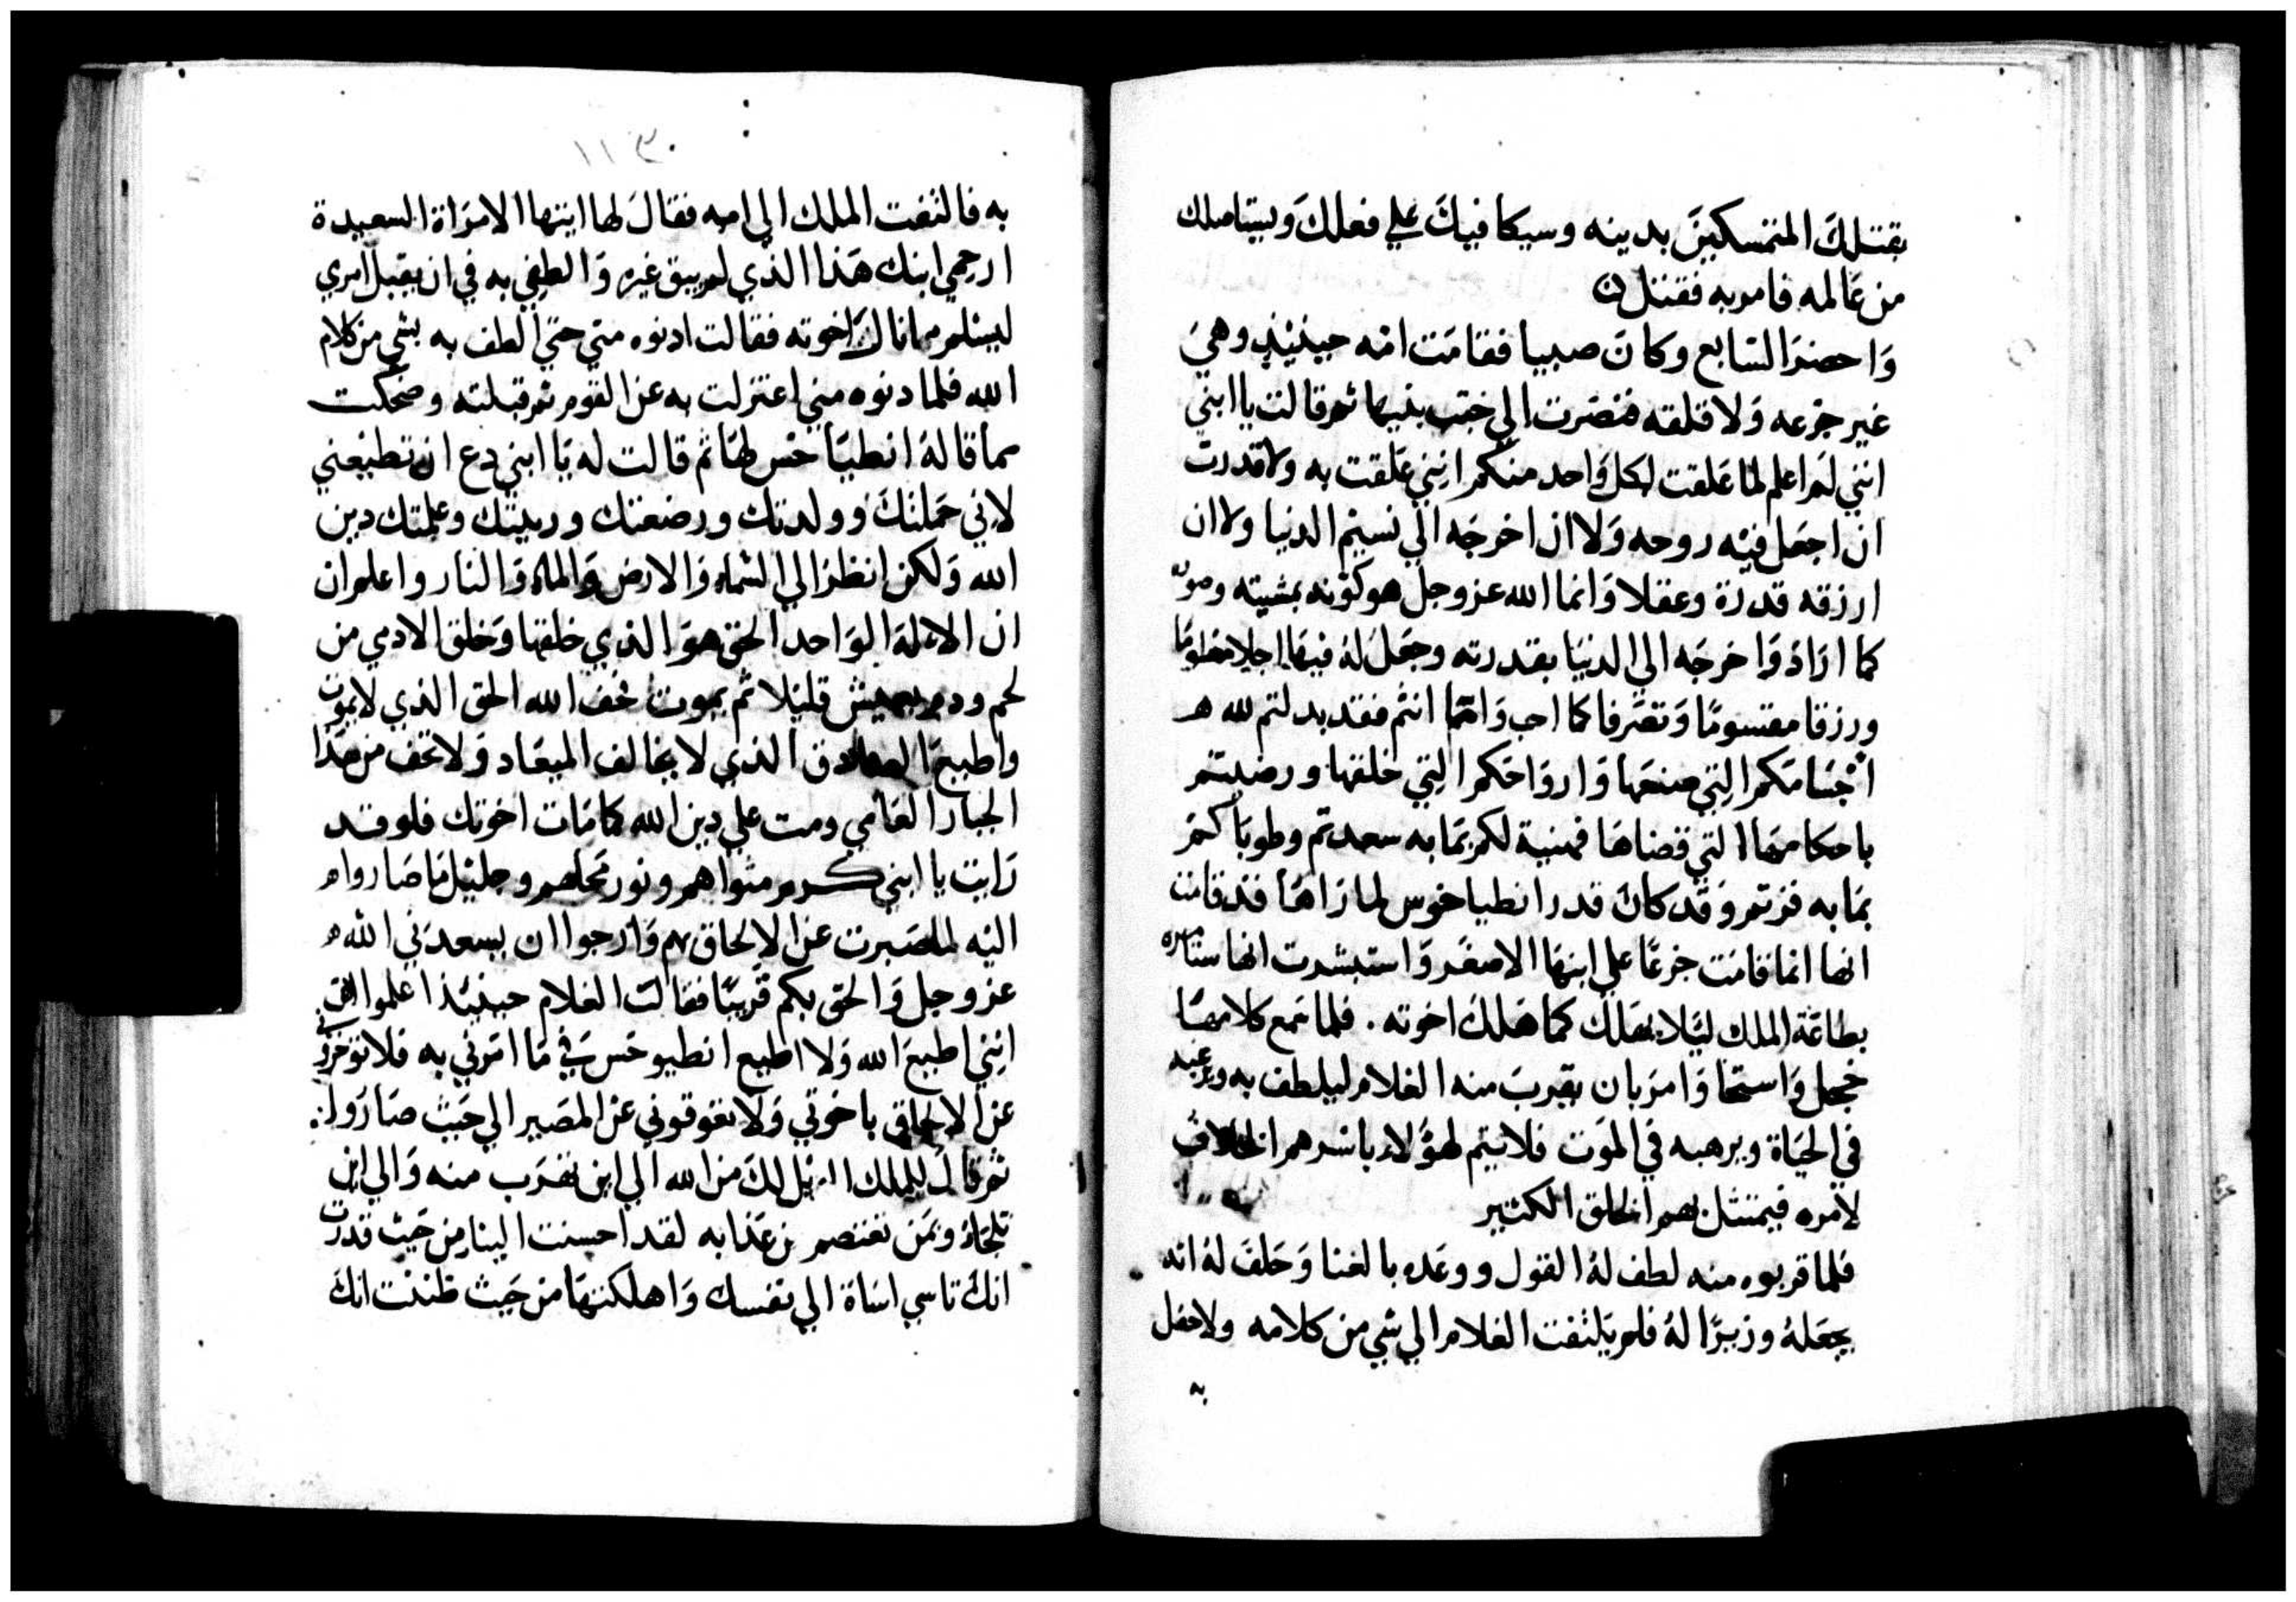 بقتلك المتمسكين بدينه وسيكافيك علي فعلك ويستاصلك
من عالمه فامر به فقتل
واحضر السابع وكان صبيا فقامت امه حينيذ وهي
غير جزعه ولا قلقه فنضرت الي جنب بنيها ثم قالت يا ابني
انني لم اعلم لما علقت لكل واحد منكم انني علقت به ولا قدرت
ان اجعل فيه روحه ولا ان اخرجه الي نسيم الدنيا ولا ان
ارزقه قدرة وعقلا وانما الله عز وجل هو كونه بمشيته وصوره
كما اراد واخرجه الي الدنيا بقدرته وجعل له فيها اجلا معلوما
ورزقا مقسوما وتصرفا كما احب وانما انتم فقد بدلتم لله
اجسامكم التي صنعها وارواحكم التي خلقها ورضيتم
باحكامه التي قضاها فهنية لكم بما به سعدتم وطوباكم
بما به فزتم وقد كان قدر انطياخوس لما راها قد قامت
انها انما قامت جزعا علي ابنها الاصغر واستبشرت انها ستامره
بطاعة الملك ليلا يهلك كما هلك اخوته . فلما سمع كلامها
خجل واستحا وامر بان يقرب منه الغلام ليلطف به ويرغبه
في الحياة ويرهبه في الموت فلا يتم لهولاء باسرهم الخلاف
لامره فيمتثل بهم الخلق الكثير
فلما قربوه منه لطف له القول ووعده بالغنا وحلف له انه
يجعله وزيرا له فلم يلتفت الغلام الي شي من كلامه ولا حفل
به
به فالتفت الملك الي امه فقال لها ايتها الامراة السعيدة
ارحمي ابنك هذا الذي لم يبق غيره والطفي به في ان يقبل امري
ليسلم مما نال اخوته فقالت ادنوه مني حتي الطف به بشي من كلام
الله فلما دنوه مني اعتزلت به عن القوم ثم قبلته وضحكت
مما قاله انطياخس لها ثم قالت له يا ابني دع ان تطيعني
لاني حملتك وولدتك ورضعتك وربيتك وعلمتك دين
الله ولكن انظر الي السماء والارض والماء والنار واعلم ان
ان الاله الواحد الحق هو الذي خلقها وخلق الادمي من
لحم ودم يعيش قليلا ثم يموت فخف الله الحق الذي لا يموت
واطيع الصادق الذي لا يخالف الميعاد ولا تخف من هذا
الجبار العامي ومت علي دين الله كما مات اخوتك فلو قد
رايت يا ابني كرم مثواهم ونور محلهم وجليل ما صاروا
اليه لما صبرت عن الالحاق بهم وارجوا ان يسعدني الله
عز وجل والحق بكم قريبا فقالت الغلام حينيذ اعلموا
انني اطيع الله ولا اطيع انطيوخس في ما امرني به فلا توخروني
عن الالحاق باخوتي ولا تعوقوني عن المصير الي حيث صاروا
ثم قال للملك الويل لك من الله الي اين تهرب منه والي اين
تلجاء وبمن تعتصم من عذابه لقد احسنت الينا من حيث قدرت
انك تاسي اساة الي نفسك واهلكتها من حيث ظننت انك